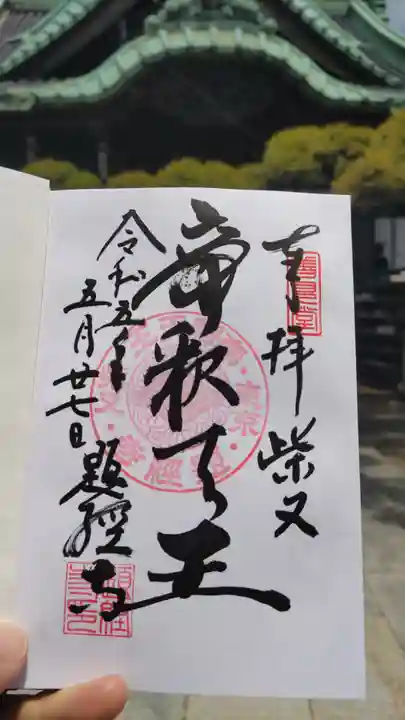 奉拝 柴又
帝釈天王
令和五年
五月廿七日
題経寺